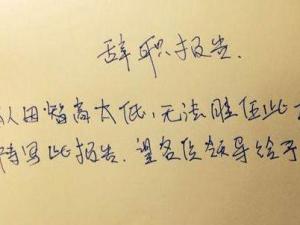 辞职报告.
人因智商太低,无法胜任此
特写此报告.望各位领导给予